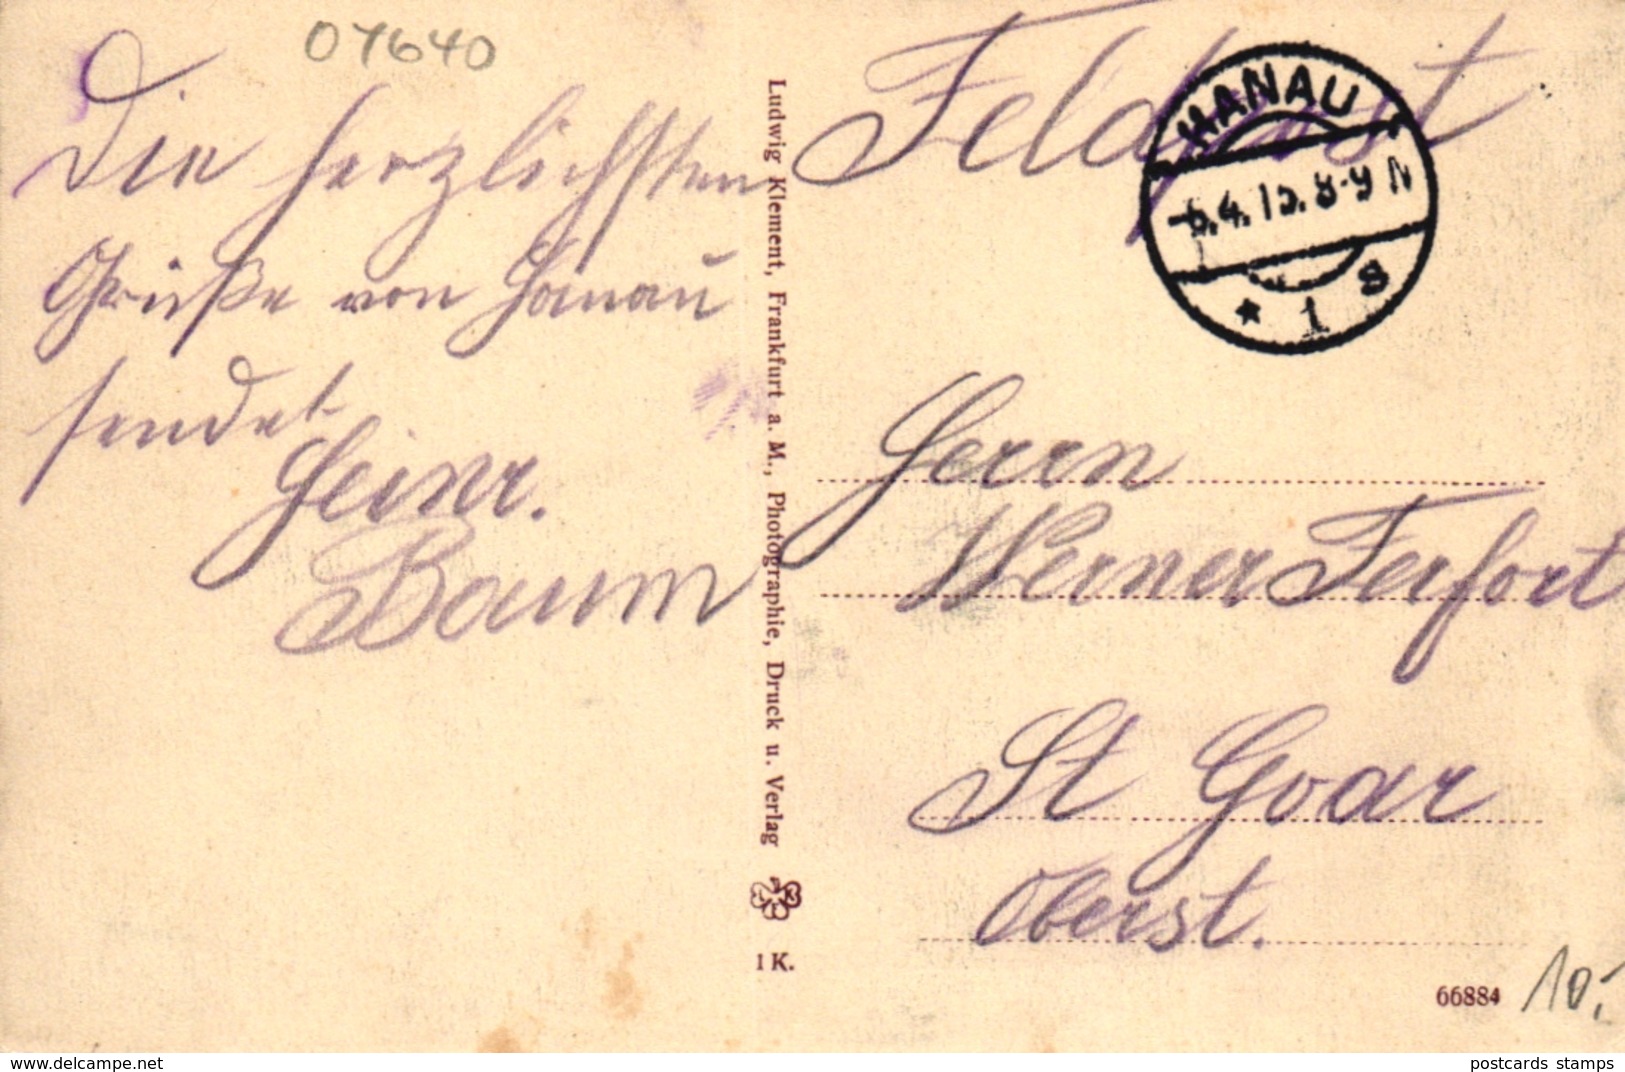 07640
Die herzlichsten
Grüße von Hanau
sendet
Heinr.
Baum
Ludwig Klement, Frankfurt a. M., Photographie, Druck u. Verlag
1 K.
Feldpost
HANAU
-6.4.15.8-9 N
* 1 s
Herrn
Werner Ferfort
St Goar
Oberst.
66884
10,-
www.delcampe.net
postcards stamps